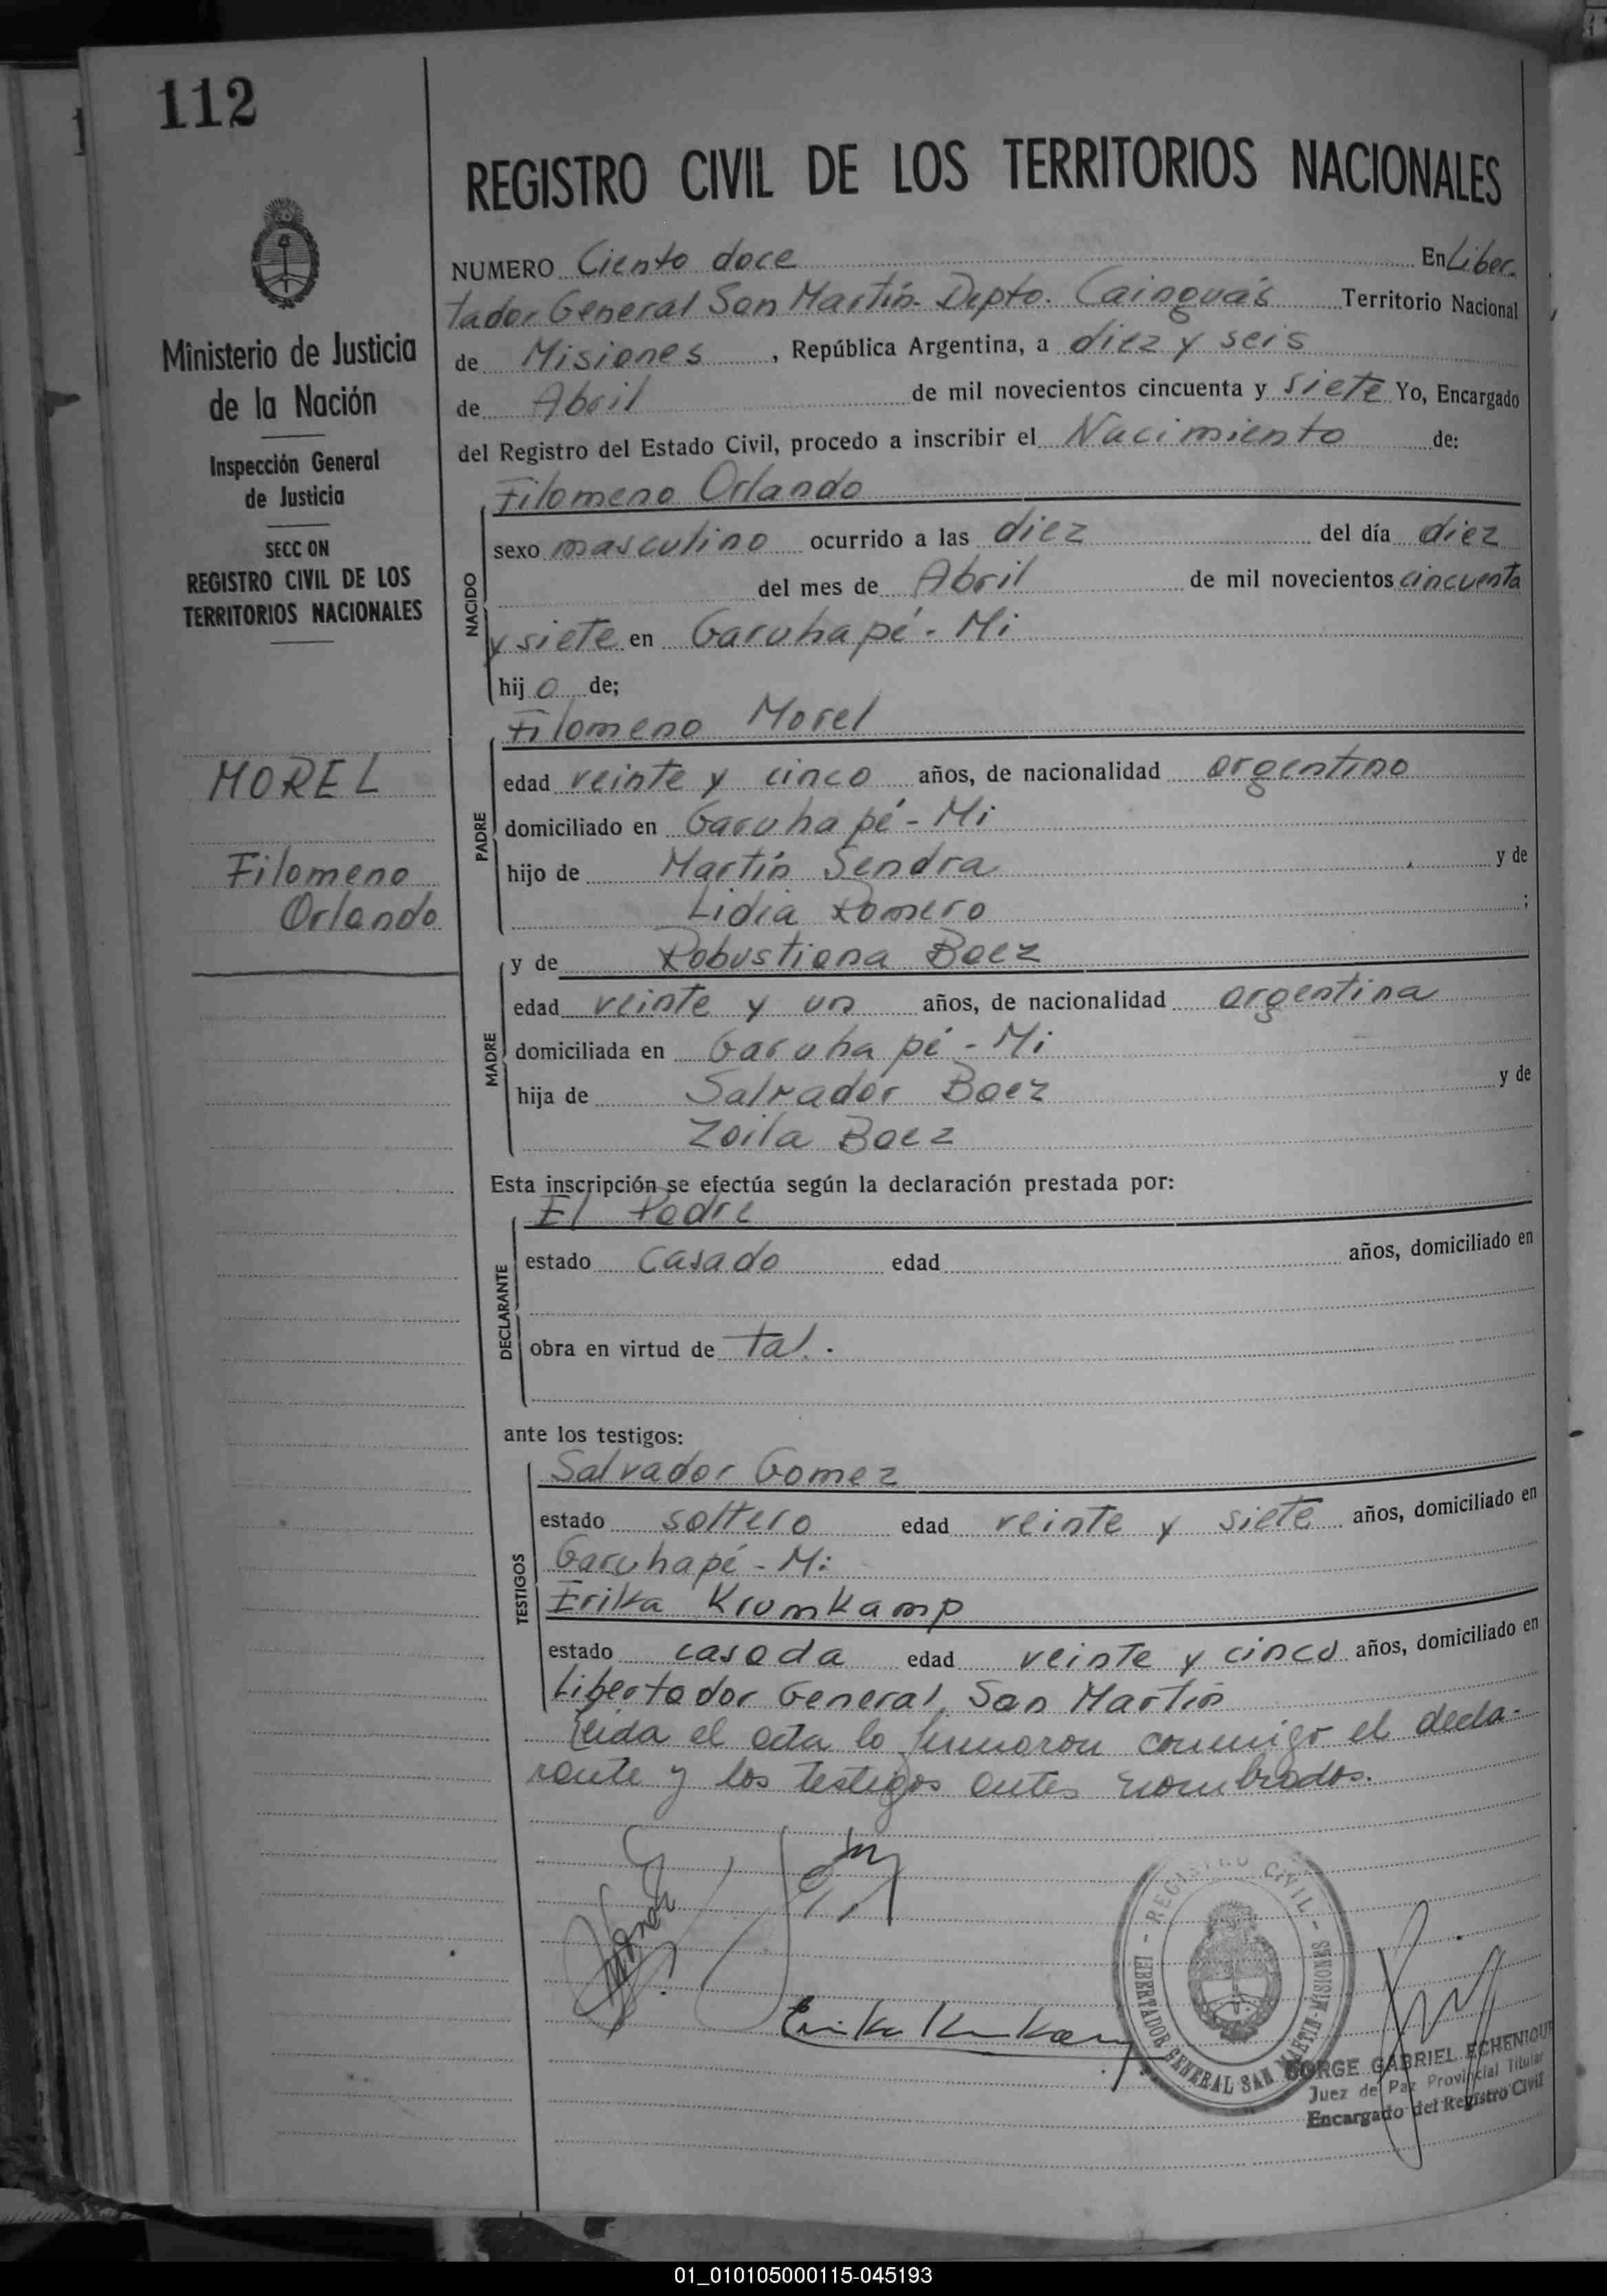 112
Ministerio de Justicia
de la Nación
Inspección General
de Justicia
SECC ON
REGISTRO CIVIL DE LOS
TERRITORIOS NACIONALES
MOREL
Filomeno
Orlando
REGISTRO CIVIL DE LOS TERRITORIOS NACIONALES
NUMERO Ciento doce En Liber-
tador General San Martín- Depto. Cainguás Territorio Nacional
de Misiones, República Argentina, a diez y seis
de Abril de mil novecientos cincuenta y siete Yo, Encargado
del Registro del Estado Civil, procedo a inscribir el Nacimiento de:
NACIDO
Filomeno Orlando
sexo masculino ocurrido a las diez del día diez
del mes de Abril de mil novecientos cincuenta
y siete en Garuhapé - Mi
hijo de;
PADRE
Filomeno Morel
edad veinte y cinco años, de nacionalidad argentino
domiciliado en Garuhapé - Mi
hijo de Martín Sendra y de
Lidia Romero ;
MADRE
y de Robustiana Baez
edad veinte y un años, de nacionalidad argentina
domiciliada en Garuhapé - Mi
hija de Salvador Baez y de
Zoila Baez
Esta inscripción se efectúa según la declaración prestada por:
DECLARANTE
El Padre
estado casado edad años, domiciliado en
obra en virtud de tal.
ante los testigos:
TESTIGOS
Salvador Gomez
estado soltero edad veinte y siete años, domiciliado en
Garuhapé - Mi
Erika Krumkamp
estado casada edad veinte y cinco años, domiciliado en
Libertador General San Martín
Leida el acta lo firmaron conmigo el decla-
rante y los testigos antes nombrados.
REGISTRO CIVIL
LIBERTADOR GENERAL SAN MARTIN-MISIONES
JORGE GABRIEL ECHENIQUE
Juez de Paz Provincial Titular
Encargado del Registro Civil
01_010105000115-045193